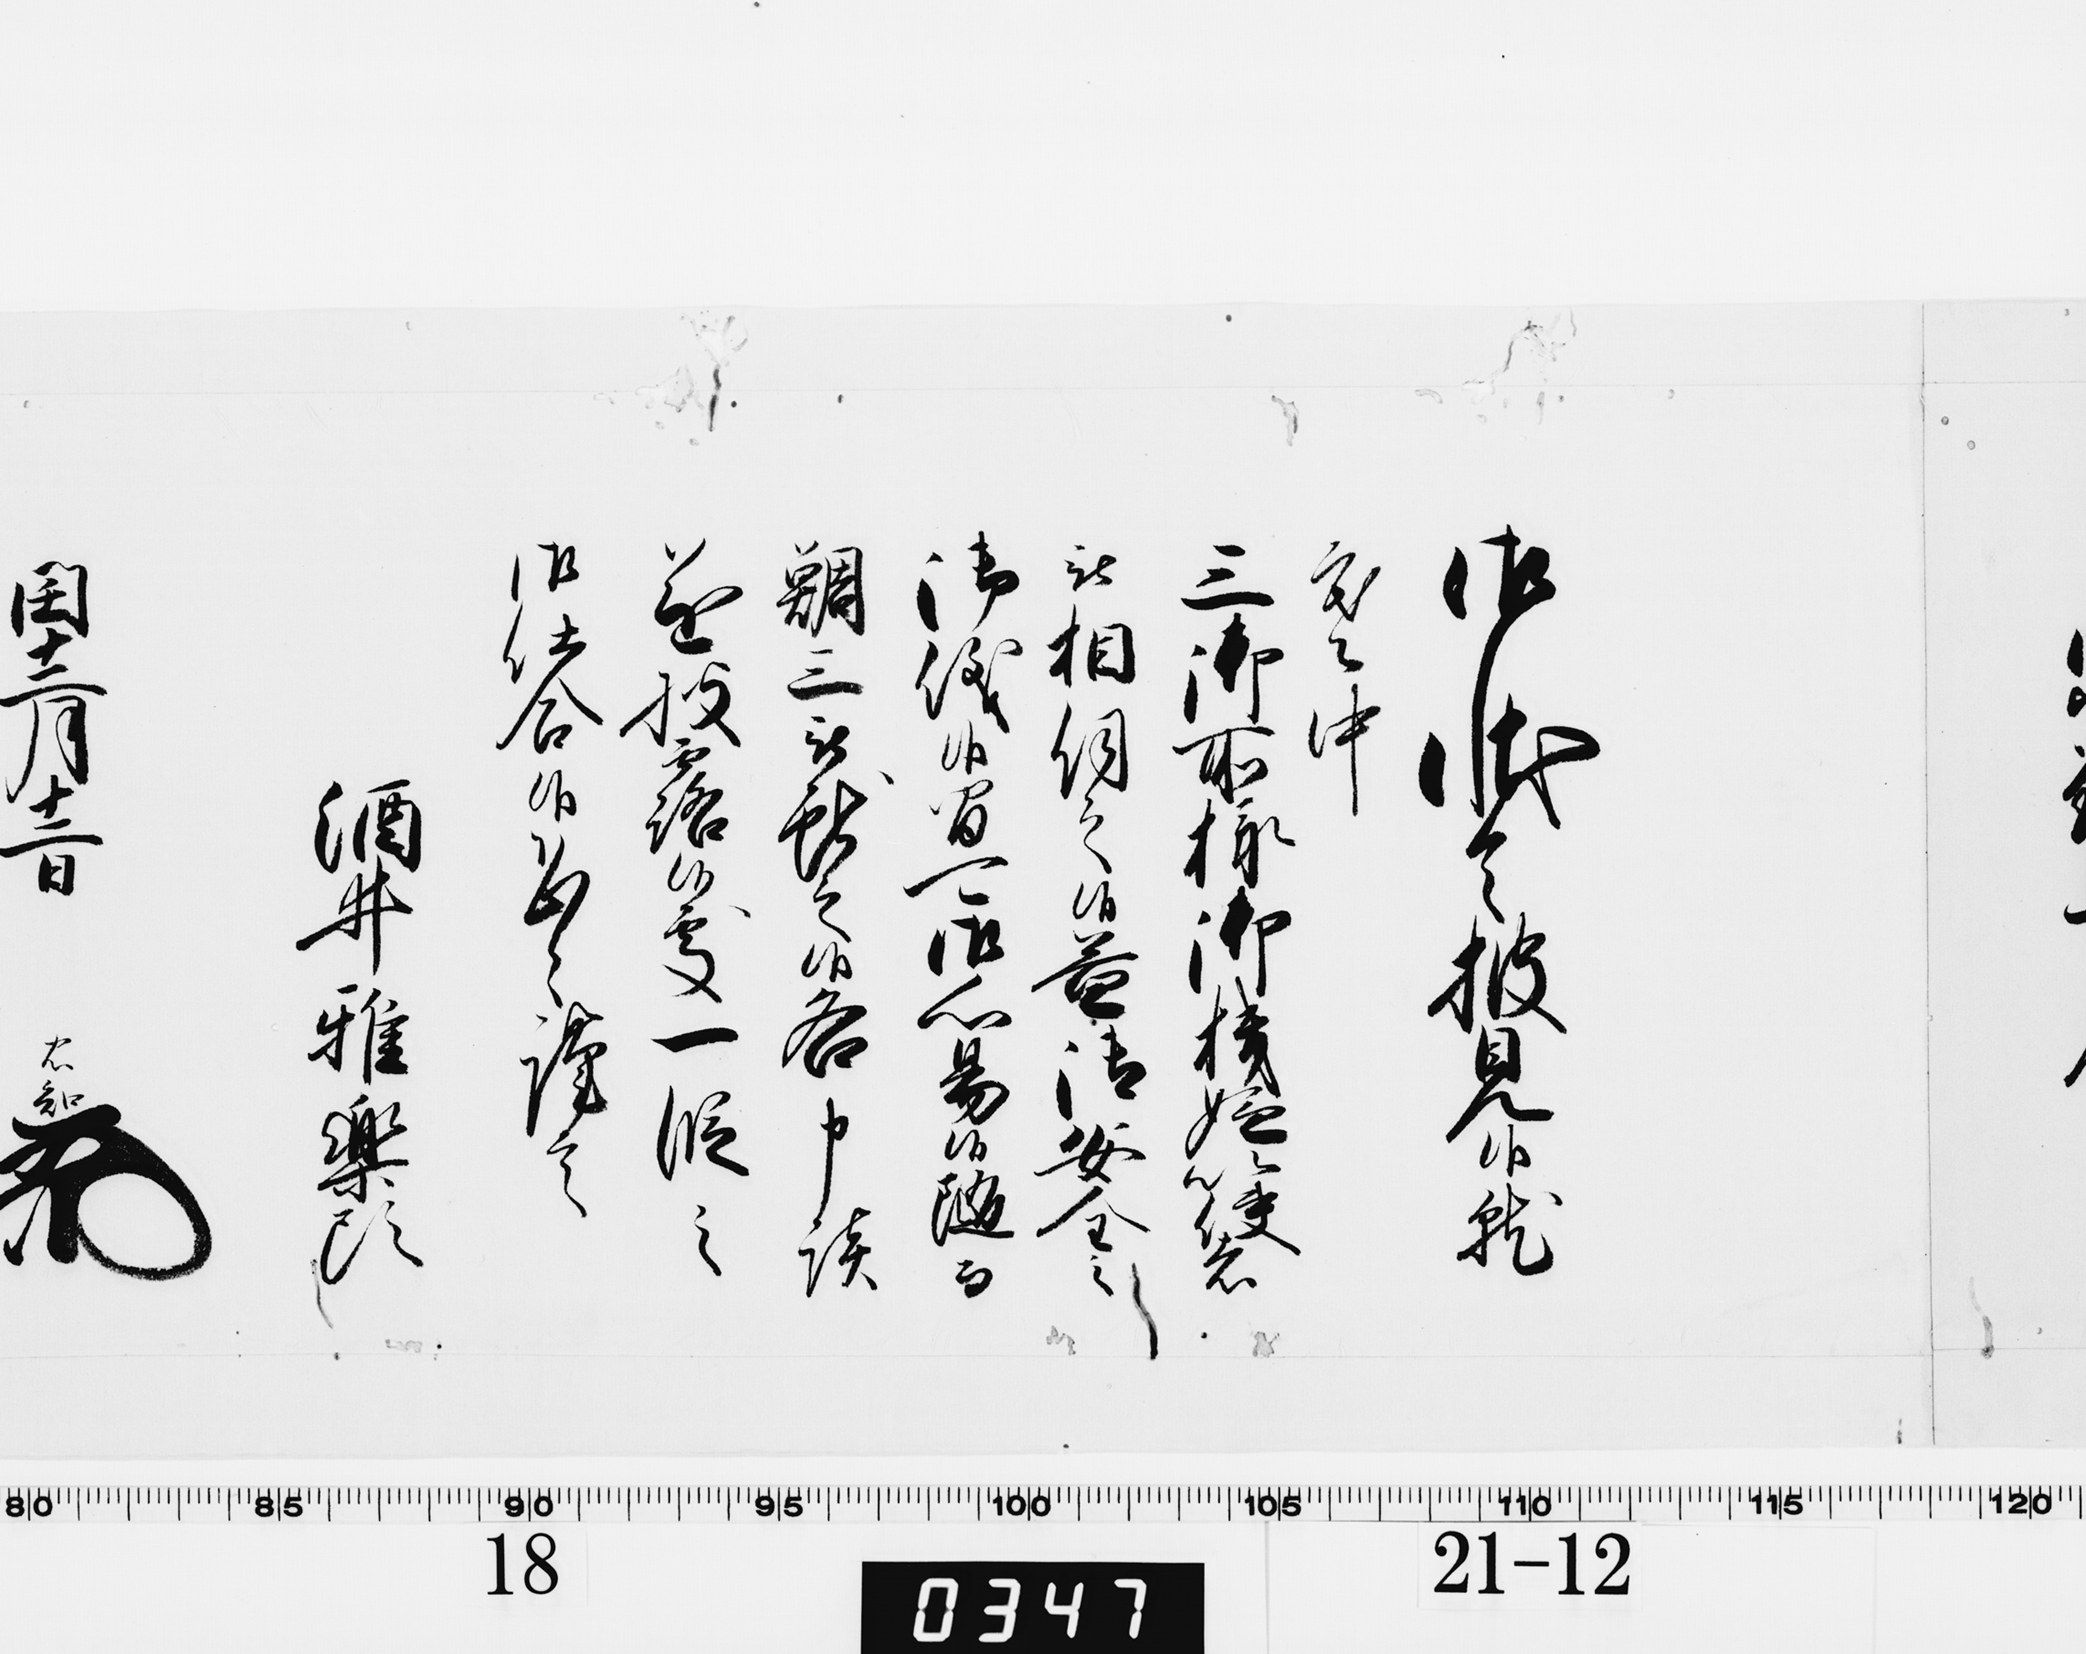 御状令披見候就
寒之中
三御所様御機嫌以使者
被相伺之候益御安全之
御儀候間可御心易候随而
鯛三被献之候各申談
遂披露候処一段之
御仕合候恐々謹言
酒井雅楽頭
閏十二月十二日
忠知
80 85 90 95 100 105 110 115 120
18
21-12
0347